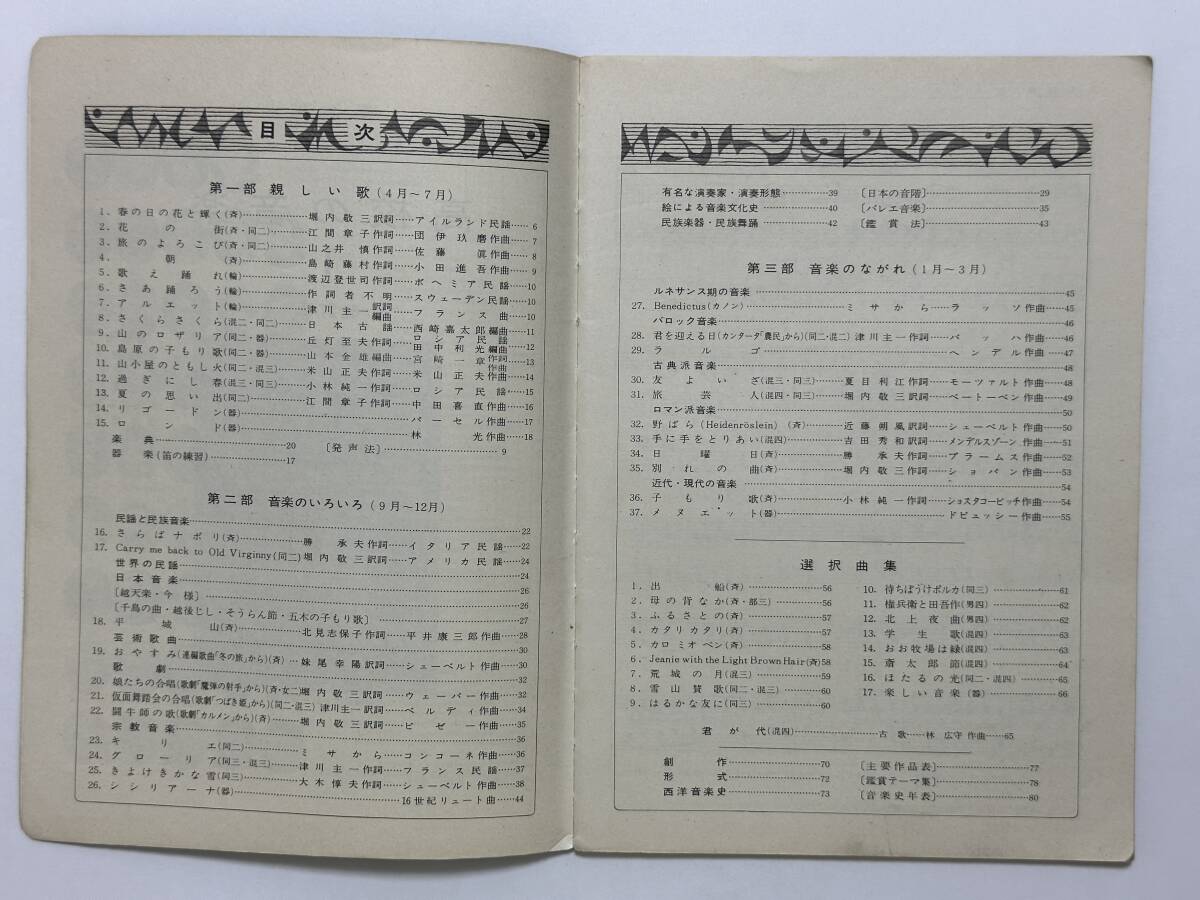 目次
第一部 親しい歌(4月〜7月)
1. 春の日の花と輝く(斉)……堀内敬三訳詞……アイルランド民謡……6
2. 花の街(斉・同二)……江間章子作詞……団伊玖磨作曲……7
3. 旅のよろこび(斉・同二)……山之井慎作詞……佐藤眞作曲……8
4. 朝(斉)……島崎藤村作詞……小田進吾作曲……9
5. 歌え踊れ(輪)……渡辺登世司作詞……ボヘミア民謡……10
6. さあ踊ろう(輪)……作詞者不明……スウェーデン民謡……10
7. アルエット(輪)……津川主一訳詞編曲……フランス曲……10
8. さくらさくら(混二・同二)……日本古謡……西崎嘉太郎編曲……11
9. 山のロザリア(同二・器)……丘灯至夫作詞……ロシア民謡 田中利光編曲……12
10. 島原の子もり歌(同二・器)……山本金雄編曲……宮崎一章作詞作曲……13
11. 山小屋のともし火(同二・同三)……米山正夫作詞……米山正夫作曲……14
12. 過ぎにし春(混三・同三)……小林純一作詞……ロシア民謡……15
13. 夏の思い出(同二)……江間章子作詞……中田喜直作曲……16
14. リゴードン(器)……パーセル作曲……17
15. ロンド(器)……林光作曲……18
楽典……20 〔発声法〕……9
器楽(笛の練習)……17
第二部 音楽のいろいろ(9月〜12月)
民謡と民族音楽……22
16. さらばナポリ(斉)……勝承夫作詞……イタリア民謡……22
17. Carry me back to Old Virginny(同二)堀内敬三訳詞……アメリカ民謡……24
世界の民謡……24
日本音楽……26
〔越天楽・今様〕……26
〔千鳥の曲・越後じし・そうらん節・五木の子もり歌〕……27
18. 平城山(斉)……北見志保子作詞……平井康三郎作曲……28
芸術歌曲……30
19. おやすみ(連編歌曲「冬の旅」から)(斉)……妹尾幸陽訳詞……シューベルト作曲……30
歌劇……32
20. 娘たちの合唱(歌劇「魔弾の射手」から)(斉・女二)堀内敬三訳詞……ウェーバー作曲……32
21. 仮面舞踏会の合唱(歌劇「つばき姫」から)(同二・混三)津川主一訳詞……ベルディ作曲……34
22. 闘牛師の歌(歌劇「カルメン」から)(斉)……堀内敬三訳詞……ビゼー作曲……35
宗教音楽……36
23. キリエ(同二)……ミサから……コンコーネ作曲……36
24. グローリア(同三・混三)……津川主一作詞……フランス民謡……37
25. きよけきかな雪(同三)……大木惇夫作詞……シューベルト作曲……38
26. シシリアーナ(器)……16世紀リュート曲……44
有名な演奏家・演奏形態……39 〔日本の音階〕……29
絵による音楽文化史……40 〔バレエ音楽〕……35
民族楽器・民族舞踊……42 〔鑑賞法〕……43
第三部 音楽のながれ(1月〜3月)
ルネサンス期の音楽……45
27. Benedictus(カノン)……ミサから……ラッソ作曲……45
バロック音楽……46
28. 君を迎える日(カンターダ「農民」から)(同二・混二)津川主一作詞……バッハ作曲……46
29. ラルゴ……ヘンデル作曲……47
古典派音楽……48
30. 友よいざ(混三・同三)……夏目利江作詞……モーツァルト作曲……48
31. 旅芸人(混四・同三)……堀内敬三訳詞……ベートーベン作曲……49
ロマン派音楽……50
32. 野ばら(Heidenröslein)(斉)……近藤朔風訳詞……シューベルト作曲……50
33. 手に手をとりあい(混四)……吉田秀和訳詞……メンデルスゾーン作曲……51
34. 日曜日(斉)……勝承夫作詞……ブラームス作曲……52
35. 別れの曲(斉)……堀内敬三作詞……ショパン作曲……53
近代・現代の音楽……54
36. 子もり歌(斉)……小林純一作詞……ショスタコービッチ作曲……54
37. メヌエット(器)……ドビュッシー作曲……55
選択曲集
1. 出船(斉)……56
2. 母の背なか(斉・部三)……56
3. ふるさとの(斉)……57
4. カタリ カタリ(斉)……57
5. カロ ミオ ベン(斉)……58
6. Jeanie with the Light Brown Hair(斉)58
7. 荒城の月(混三)……59
8. 雪山賛歌(同二・混三)……60
9. はるかな友に(同三)……60
10. 待ちぼうけポルカ(同三)……61
11. 権兵衛と田吾作(男四)……62
12. 北上夜曲(男四)……62
13. 学生歌(混四)……63
14. おお牧場は緑(混四)……63
15. 斎太郎節(混四)……64
16. ほたるの光(同二・混四)……65
17. 楽しい音楽(器)……66
君が代(混四)……古歌……林広守作曲……65
創作……70 〔主要作品表〕……77
形式……72 〔鑑賞テーマ集〕……78
西洋音楽史……73 〔音楽史年表〕……80